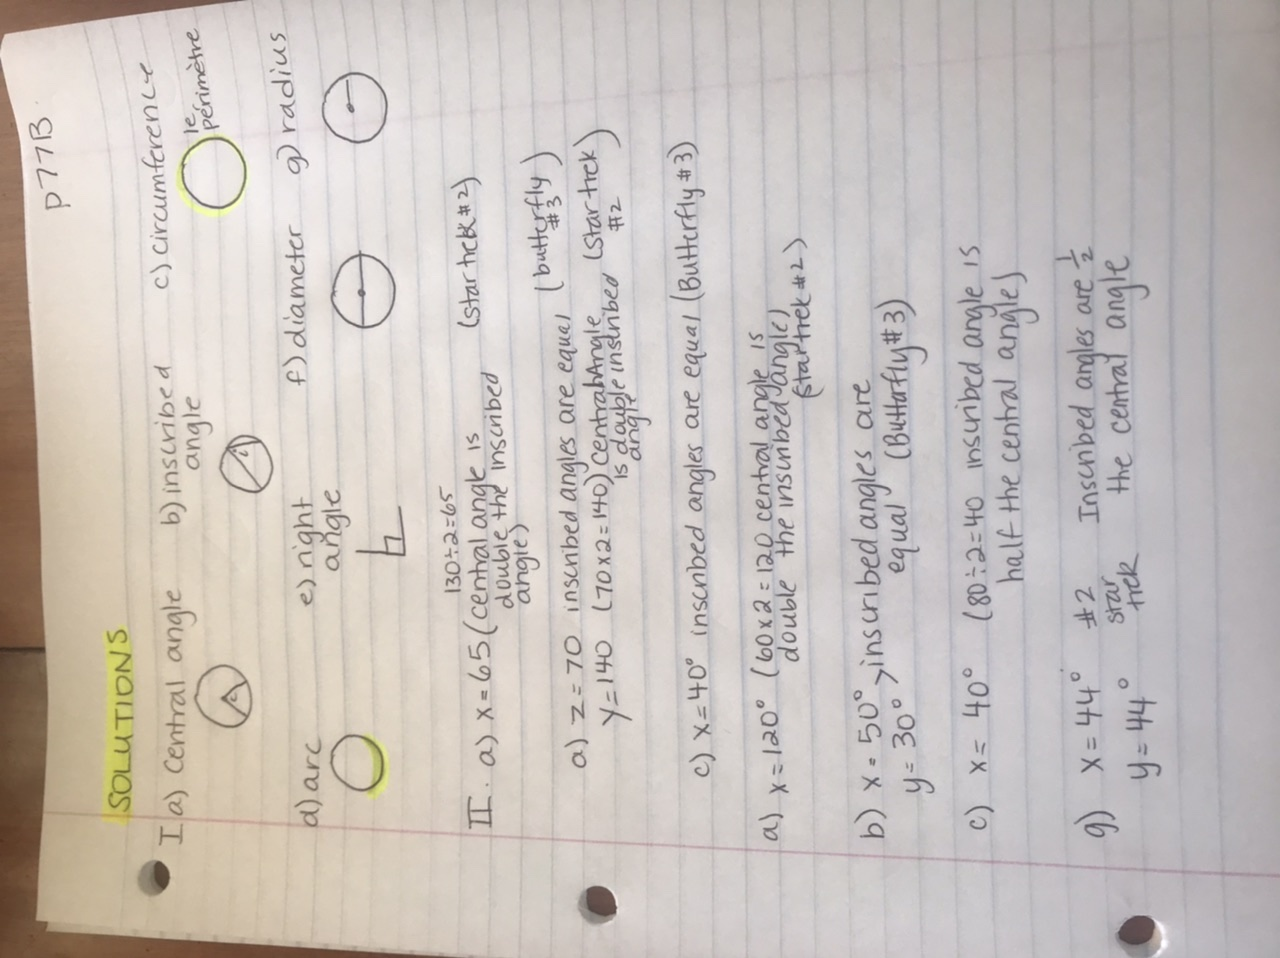 p77B.
SOLUTIONS
I a) Central angle b) inscribed angle c) circumference
le périmètre
d) arc e) right angle f) diameter g) radius
130÷2=65
II. a) x=65 (central angle is (star trek #2)
double the inscribed
angle)
a) z=70 inscribed angles are equal (butterfly #3)
y=140 (70x2=140) Central Angle (star trek #2)
is double inscribed
angle
c) x=40° inscribed angles are equal (Butterfly #3)
a) x=120° (60x2=120 central angle is
double the inscribed angle)
(star trek #2)
b) x=50° > inscribed angles are
y=30° equal (Butterfly #3)
c) x=40° (80÷2=40 inscribed angle is
half the central angle)
g) x=44° #2 Inscribed angles are 1/2
y=44° star trek the central angle